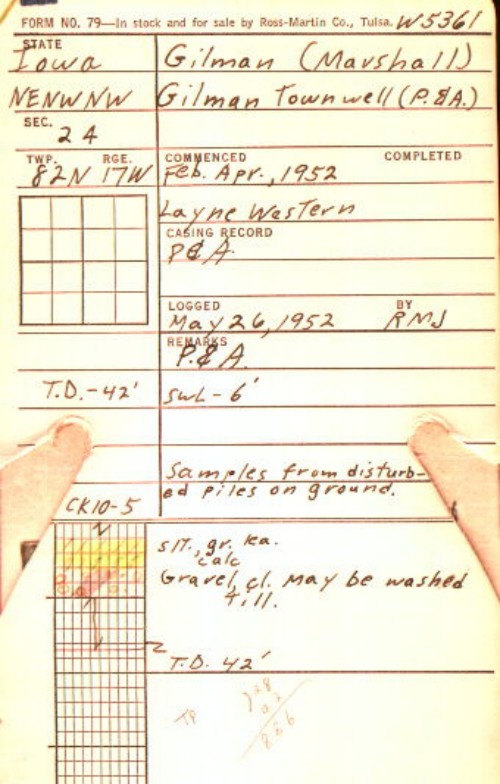 FORM NO. 79—In stock and for sale by Ross-Martin Co., Tulsa. W5361
STATE
Iowa Gilman (Marshall)
NENWNW Gilman Townwell (P.&A.)
SEC.
24
TWP. RGE. COMMENCED COMPLETED
82N 17W Feb. Apr., 1952
Layne Western
CASING RECORD
P&A.
LOGGED BY
May 26, 1952 RMJ
REMARKS
P.&A.
T.D.-42' swl-6'
Samples from disturb-
ed piles on ground.
CK10-5
slt., gr.
calc
Gravel, cl. May be washed
till.
T.D. 42'
TP